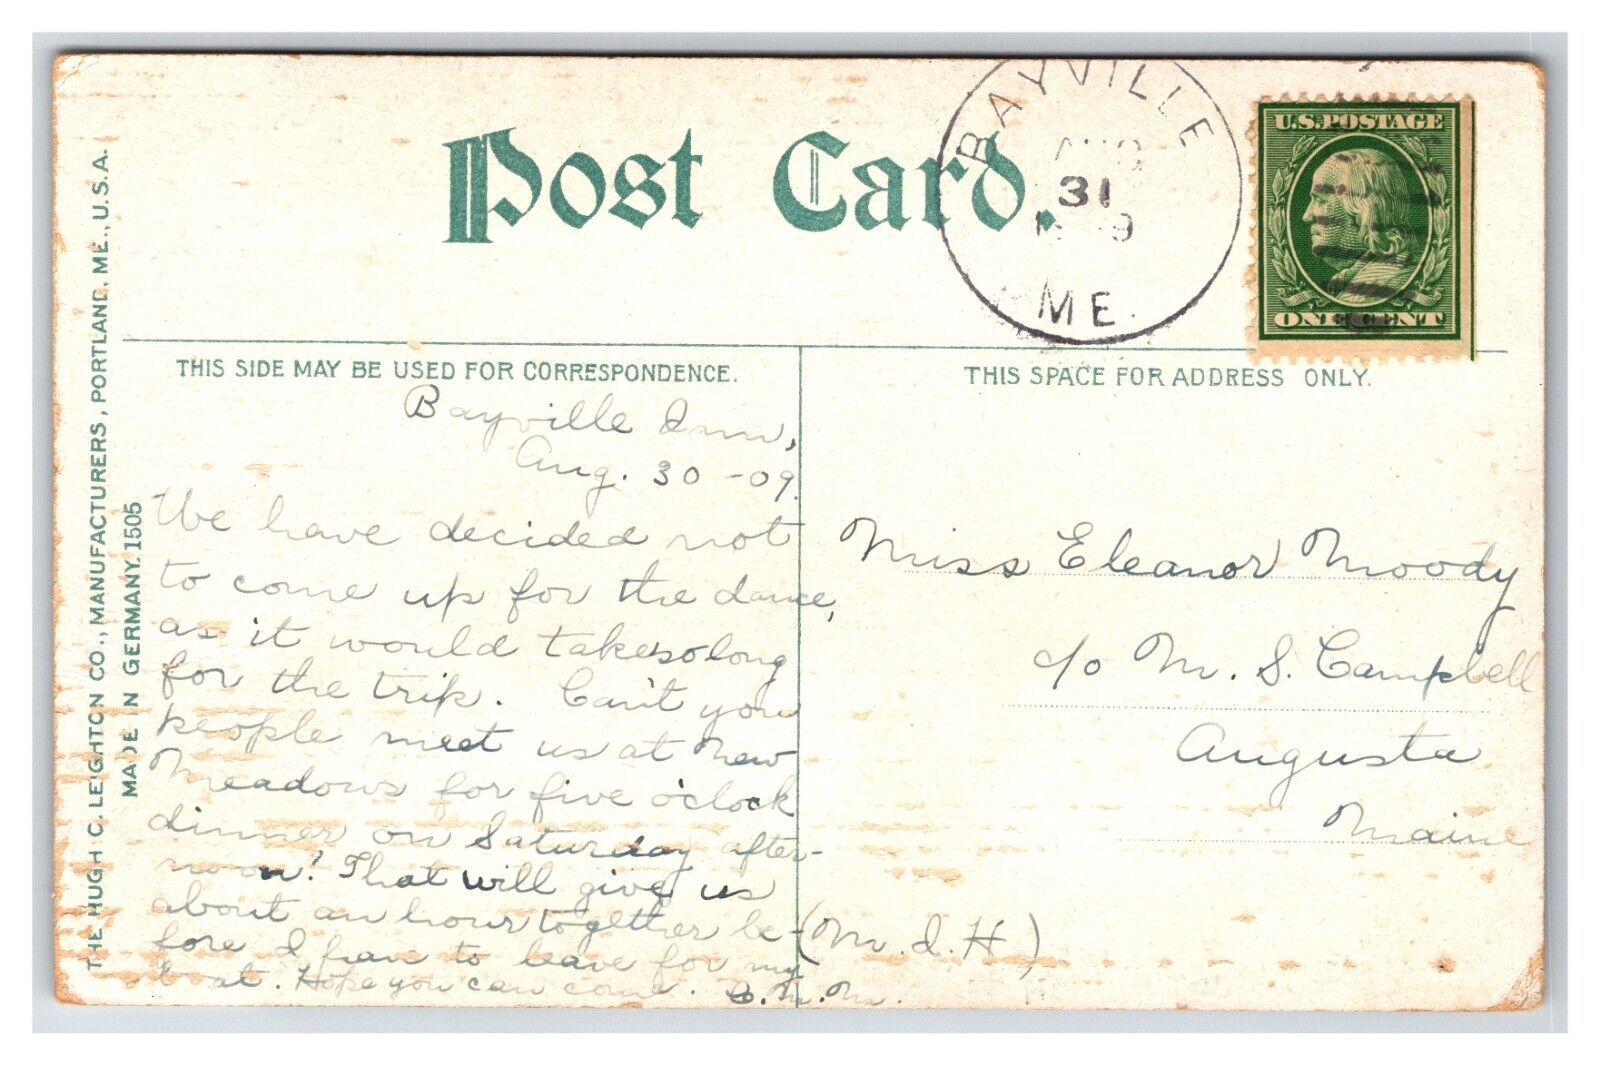 Post Card.
BAYVILLE
AUG
31
ME.
U.S. POSTAGE
ONE CENT
THE HUGH C. LEIGHTON CO., MANUFACTURERS, PORTLAND, ME., U.S.A.
MADE IN GERMANY. 1505
THIS SIDE MAY BE USED FOR CORRESPONDENCE.
THIS SPACE FOR ADDRESS ONLY.
Bayville Inn,
Aug. 30 -09.
We have decided not
to come up for the dance,
as it would take so long
for the trip. Can't you
people meet us at New
Meadows for five o'clock
dinner on Saturday after-
noon? That will give us
about an hour together be-
fore I have to leave for my
boat. Hope you can come.
(M. I. H)
Miss Eleanor Moody
c/o M. S. Campbell
Augusta
Maine